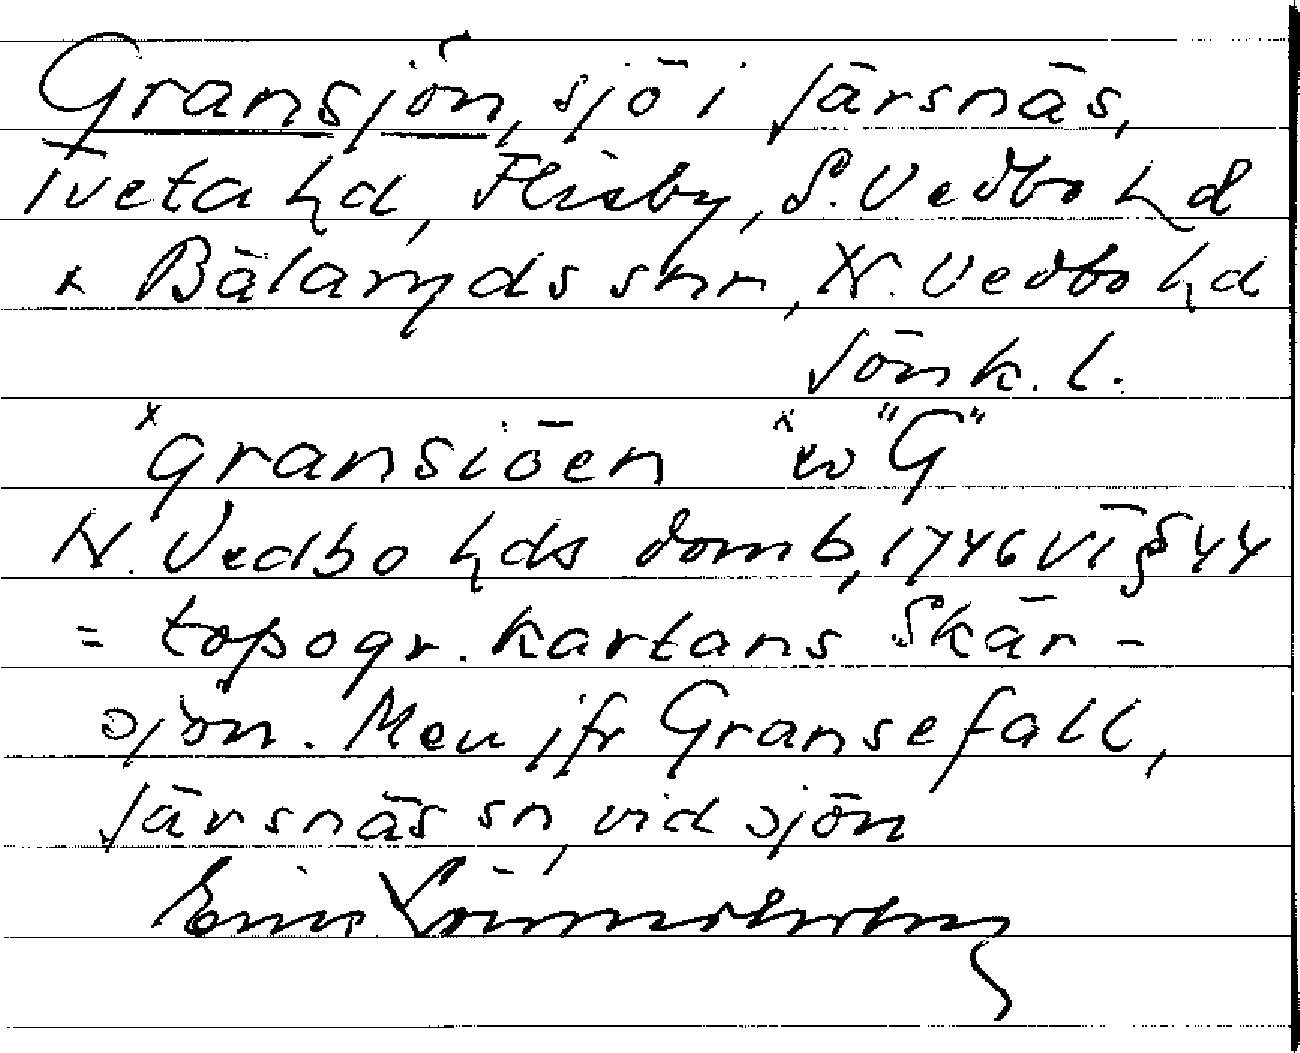 Gransjön, sjö i Järsnäs,
Tveta hd, Flisby, S. Vedbo hd
x Bälaryds snr, N. Vedbo hd
Jönk. l.
x gransiöen x "G"
N. Vedbo hds domb, 1746 VI § 44
= topogr. kartans Skär-
sjön. Men jfr Gransefall,
Järsnäs sn, vid sjön